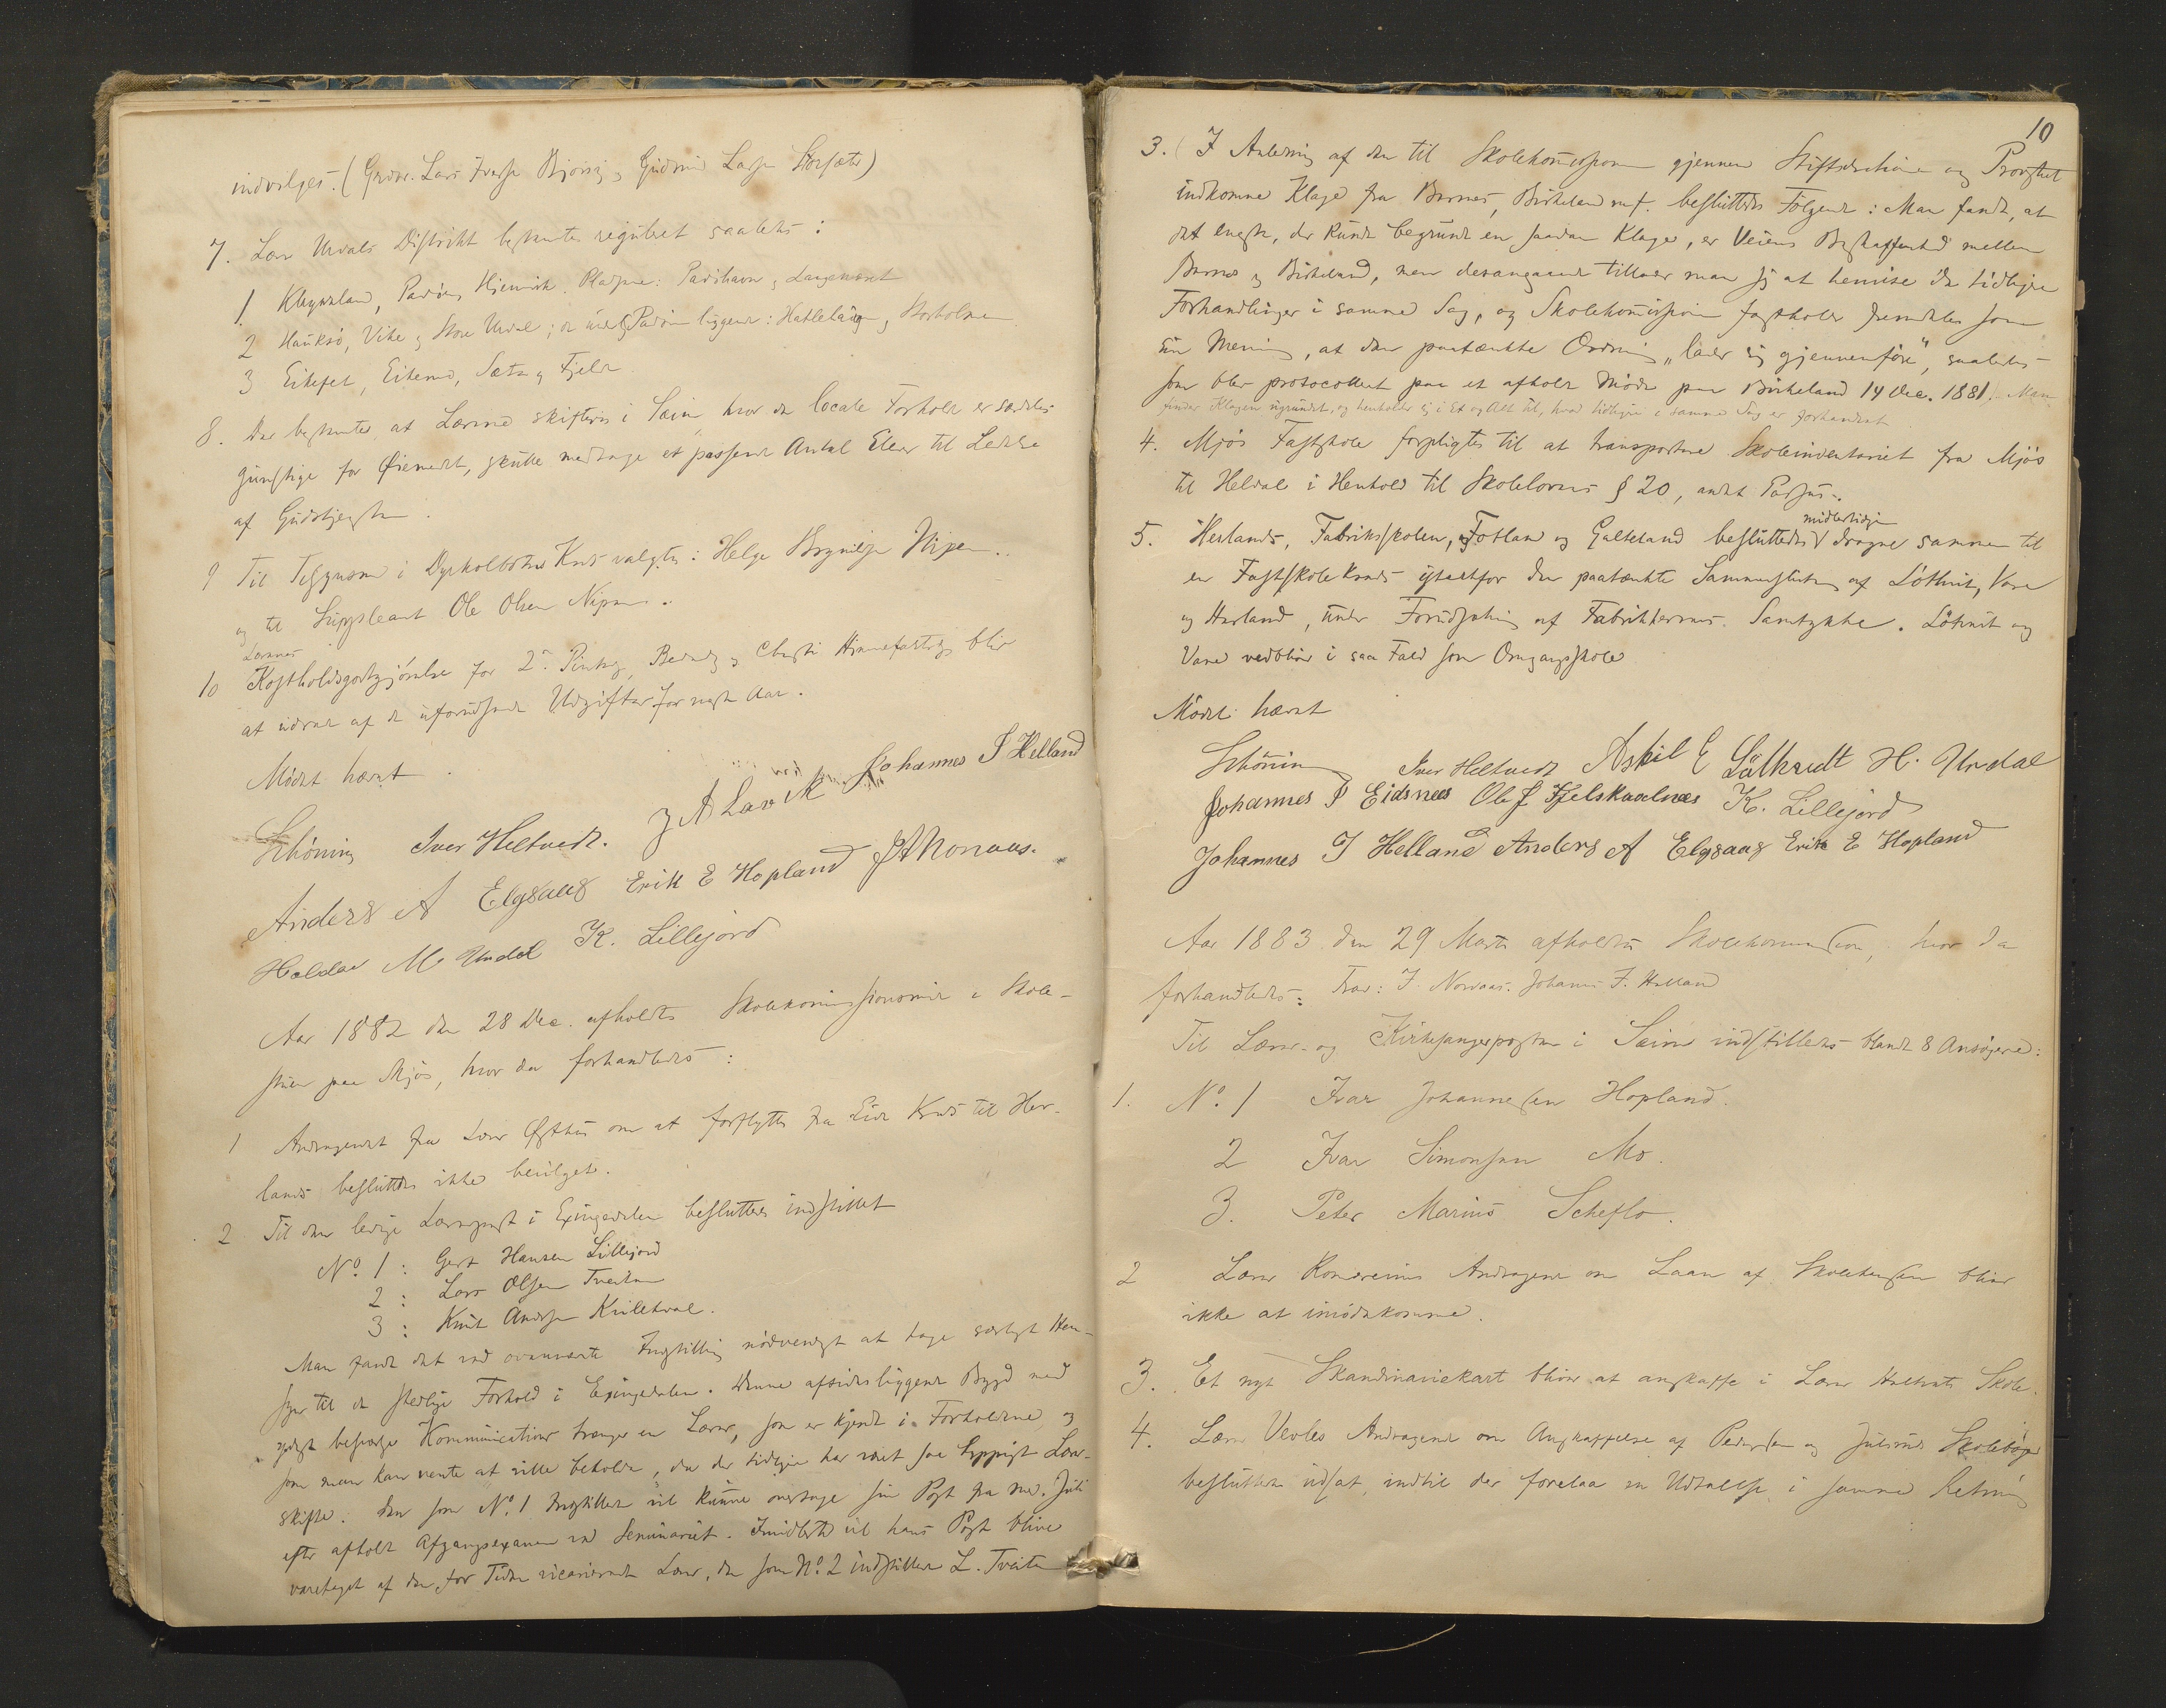 indvilges. (Gudm. Lars Iverse Bjørsvig, Gudmund Larsen Storsæter)
7. Lærer Urdals Distrikt bestemtes reguleret saaledes:
1. Kleyveland, Padøen, Hjelmvik. Pladsene: Padihavn, Langenæset
2 Hauksø, Vike, Store Urdal; de ved Padøen liggende: Hatleløien, Storholmen
3 Eikefet, Eikemo, Sæter og Fjeld
8. Det bestemtes at Lærerne skiftevis i Seim, hvor de locale Forhold er særdeles
gunstige for Øiemedet, skulle medtage et passende Antal Elever til Ledelse
af Gudstjenesten.
9 Til Tilsynsmand i Dyrkolbotns Kreds valgtes: Helge Brynilsen Nipen.
og til Suppleant Ole Olsen Nipen.
10 Lærernes Kostholdsgodtgjørelse for 2den Pintsedag, Bededag og Christi Himmelfartsdag bliver
at udrede af de uforudseede Udgifter for næste Aar.
Mødet hævet.
Schöning Iver Heltvedt. J A Lavik Johannes J Helland
Anders A Elgsaas Erik E Hopland J A Norvaas.
Haldor M. Undal K. Lillejord
Aar 1882 den 28 Dec. afholdtes Skolekommissionsmøde i Skole-
stuen paa Mjøs, hvor da forhandledes:
1 Andragendet fra Lærer Østhus om at forflyttes fra Eide Kreds til Her-
lands besluttedes ikke bevilget.
2 Til den ledige Lærerpost i Exingedalen besluttedes indstillet
No. 1: Gert Hansen Lillejord
2: Lars Olsen Tveiten
3: Knut Andersen Kvilekval.
Man fandt det ved ovennævnte Indstilling nødvendigt at tage særligt Hen-
syn til de stedlige Forhold i Exingedalen. Denne afsidesliggende Bygd med
yderst besværlige Kommunicationer trænger en Lærer, som er kjendt i Forholdene og
som man kan vente at ville beholde, da der tidligere har været saa hyppigt Lærer-
skifte. Den som No. 1 Indstillede vil kunne overtage sin Post fra Juli
efter afholdt Afgangsexamen ved Seminariet. Imidlertid vil hans Post blive
varetaget af den for Tiden vicarierende Lærer, den som No. 2 indstillede L. Tveiten
10
3. I Anledning af den til Skolekommissionen gjennem Stiftsdirektionen og Provstiet
indkomne Klage fra Barnes, Birkeland m.f. besluttedes Følgende: Man fandt, at
det eneste, der kunde begrunde en saadan Klage, er Veiens Beskaffenhed mellem
Barnes og Birkeland, men desangaaende tillader man sig at henvise til de tidligere
Forhandlinger i samme Sag, og Skolekommissionen fastholder fremdeles som
sin Mening, at den paatænkte Ordning „lader sig gjennemføre", saaledes
som blev protocolleret paa et afholdt Møde paa Birkeland 14 Dec. 1881. Man
finder Klagen ugrundet, og henholder sig i Et og Alt til, hvad tidligere i samme Sag er forhandlet
4. Mjøs Fastskole forpligtes til at transportere Skoleinventariet fra Mjøs
til Heldal i Henhold til Skolelovens § 20, andet Passus.
5. Herlands, Fabrikskolen, Fotland og Galteland besluttedes midlertidigen dragne sammen til
en Fastskolekreds istedetfor den paatænkte Sammenslutning af Løtveit, Vare
og Herland, under Forudsætning af Fabrikkernes Samtykke. Løtveit og
Vare vedbliver i saa Fald som Omgangsskole
Mødet hævet
Schöning Iver Heltvedt Askil E Låtkvedt H. Undal
Johannes P Eidsnes Ole J Fjelskaalnes K. Lillejord
Johannes J Helland Anders A Elgsaas Erik E Hopland
Aar 1883 den 29 Marts afholdtes Skolekommission, hvor da
forhandledes: Frav: J. Norvaas. Johannes J. Helland
Til Lærer- og Kirkesangerposten i Seim indstilledes blandt 8 Ansøgere:
1. No. 1 Ivar Johannesen Hopland.
2 Ivar Simonsen Mo.
3. Peter Marius Scheflo.
2 Lærer Romereims Andragende om Laan af Skolekassen bliver
ikke at imødekomme.
3. Et nyt Skandinaviekart bliver at anskaffe i Lærer Heltvedts Skole.
4. Lærer Vevles Andragende om Anskaffelse af Pedersen og Juliusens Skolebøger
besluttedes udsat, indtil der forelaa en Udtalelse i samme Retning